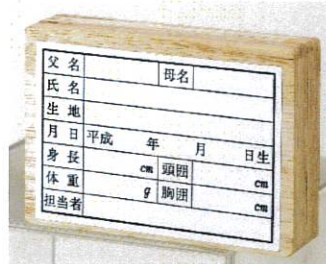 父名 母名
氏名
生地
月日 平成 年 月 日生
身長 cm 頭囲 cm
体重 g 胸囲 cm
担当者